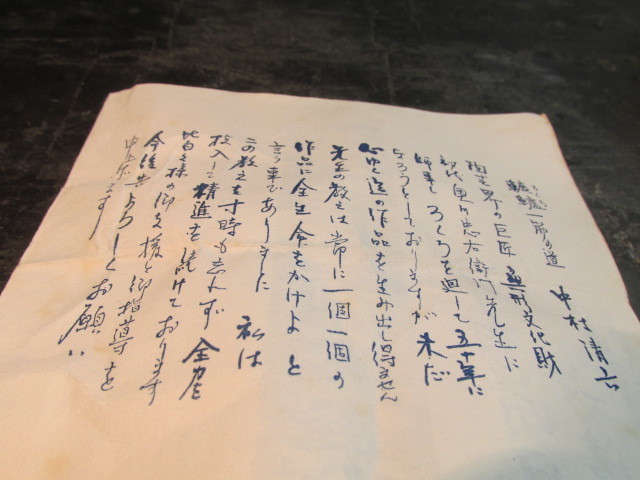 轆轤一筋の道
中村清六
陶芸界の巨匠 無形文化財
初代 奥川忠右衛門先生に
師事し ろくろを廻して五十年に
なろうとしておりますが 未だ
心ゆく迄の作品を生み出し得ません
先生の教えは常に一個一個の
作品に全生命をかけよ と
言う事でありました 私は
この教えを寸時も忘れず 全力を
投入して精進を続けております
皆々様の御支援と御指導を
今後共よろしくお願い
申し上げます